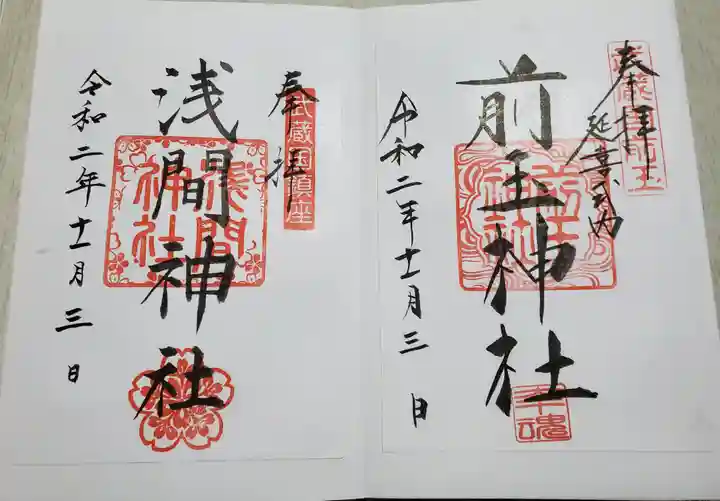 奉拝
延喜式内
前玉神社
令和二年十一月三日
幸魂
奉拝
武蔵国鎮座
浅間神社
浅間神社
令和二年十一月三日